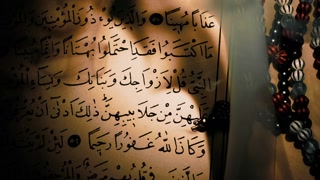 عَذَابًا مُهِينًا ۝ وَالَّذِينَ يُؤْذُونَ الْمُؤْمِنِينَ
مَا اكْتَسَبُوا فَقَدِ احْتَمَلُوا بُهْتَانًا وَإِثْمًا
النَّبِيُّ قُلْ لِأَزْوَاجِكَ وَبَنَاتِكَ وَنِسَاءِ
عَلَيْهِنَّ مِنْ جَلَابِيبِهِنَّ ذَٰلِكَ أَدْنَىٰ أَنْ
وَكَانَ اللَّهُ غَفُورًا رَحِيمًا ۝ لَئِنْ
وَالَّذِينَ فِي قُلُوبِهِمْ مَرَضٌ